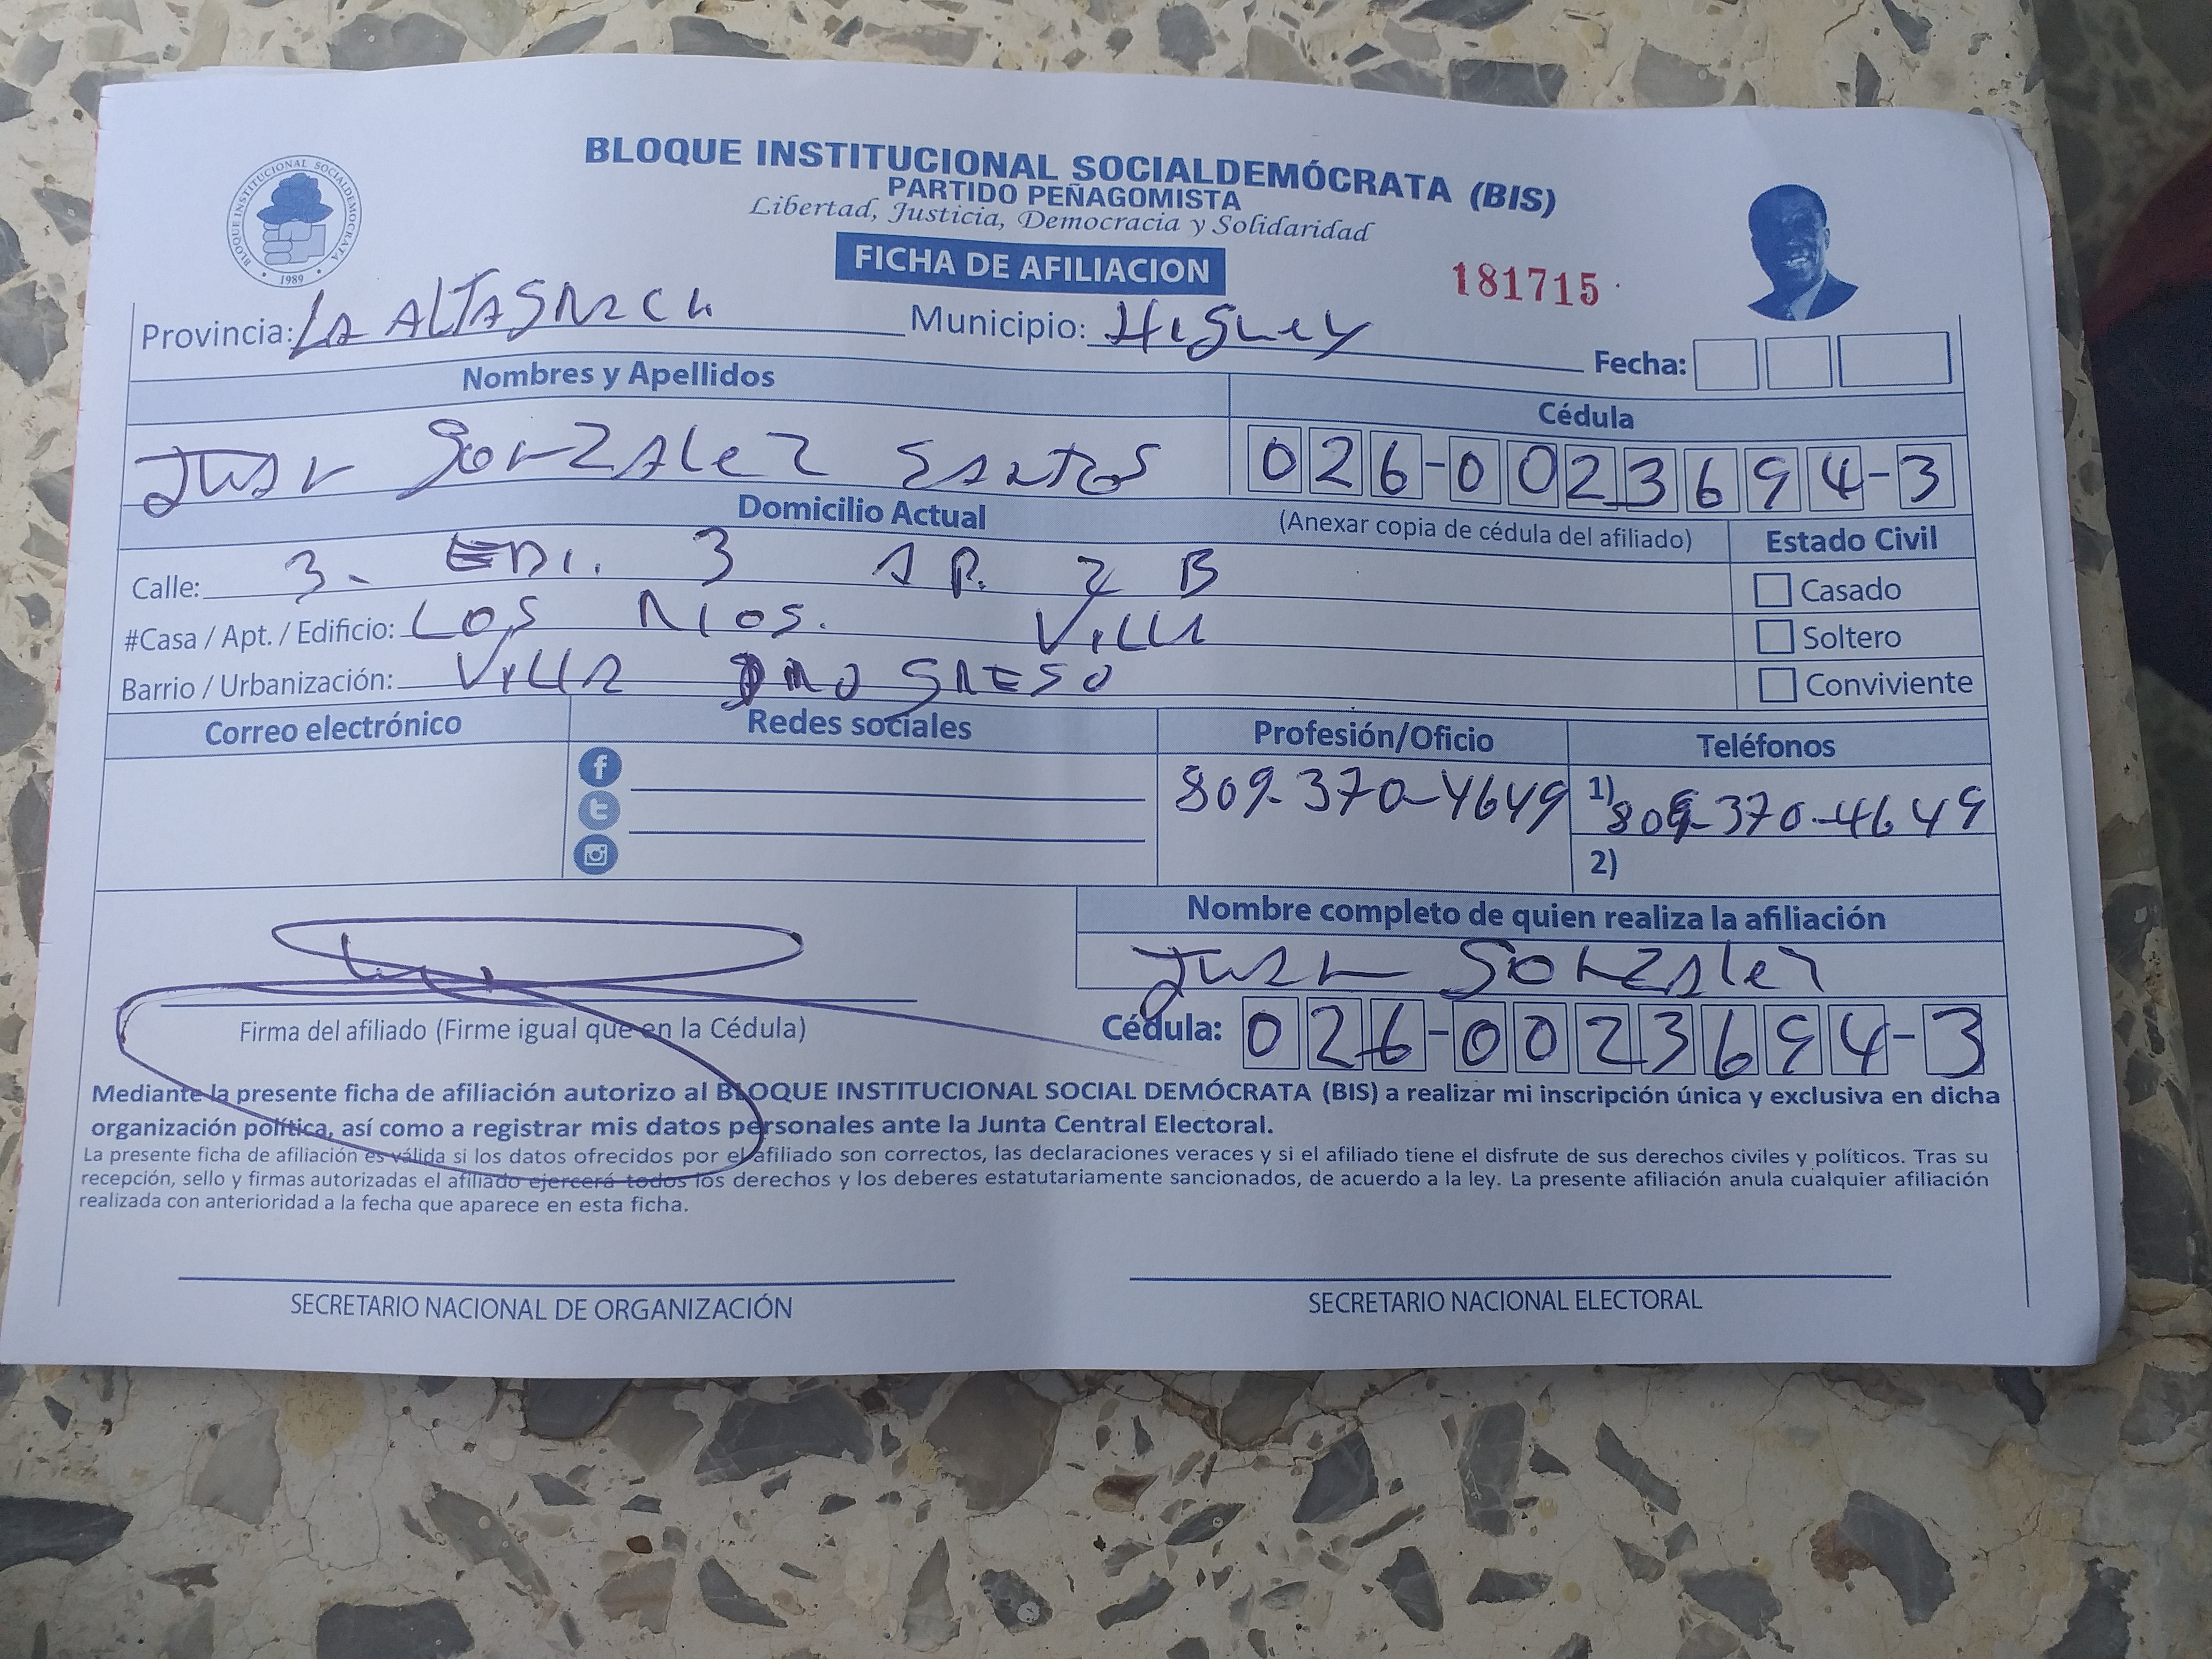 BLOQUE INSTITUCIONAL SOCIALDEMÓCRATA (BIS)
PARTIDO PEÑAGOMISTA
Libertad, Justicia, Democracia y Solidaridad
BLOQUE INSTITUCIONAL SOCIALDEMOCRATA
1989
FICHA DE AFILIACION
181715
Provincia: LA ALTAGRACIA Municipio: Higuey
Fecha:
Nombres y Apellidos
Cédula
Juan Gonzalez Santos
026-0023694-3
Domicilio Actual
(Anexar copia de cédula del afiliado)
Estado Civil
Calle: 3. EDI. 3 AP. 2 B
Casado
#Casa / Apt. / Edificio: Los Rios. Villa
Soltero
Barrio / Urbanización: Villa PROGRESO
Conviviente
Correo electrónico
Redes sociales
Profesión/Oficio
Teléfonos
809-370-4649
1) 809-370-4649
2)
Nombre completo de quien realiza la afiliación
Juan Gonzalez
Firma del afiliado (Firme igual que en la Cédula)
Cédula: 026-0023694-3
Mediante la presente ficha de afiliación autorizo al BLOQUE INSTITUCIONAL SOCIAL DEMÓCRATA (BIS) a realizar mi inscripción única y exclusiva en dicha
organización política, así como a registrar mis datos personales ante la Junta Central Electoral.
La presente ficha de afiliación es válida si los datos ofrecidos por el afiliado son correctos, las declaraciones veraces y si el afiliado tiene el disfrute de sus derechos civiles y políticos. Tras su
recepción, sello y firmas autorizadas el afiliado ejercerá todos los derechos y los deberes estatutariamente sancionados, de acuerdo a la ley. La presente afiliación anula cualquier afiliación
realizada con anterioridad a la fecha que aparece en esta ficha.
SECRETARIO NACIONAL DE ORGANIZACIÓN
SECRETARIO NACIONAL ELECTORAL